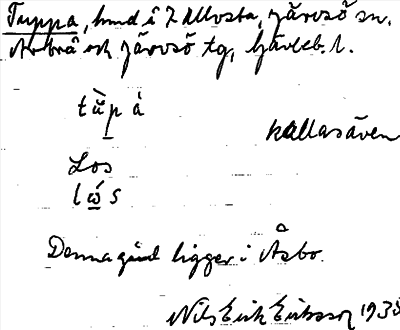 Tuppa, hmd i Z Ullvsta, Järvsö sn.
Arbrå och Järvsö tg, Gävleb. l.
tùpa
kallas även
Los
lós
Denna gård ligger i Åsbo.
Nils Erik Eriksson 1935